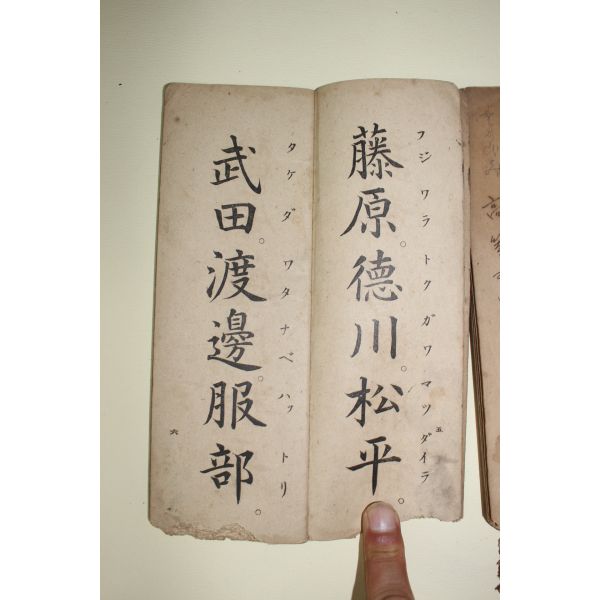 藤原。德川。松平。
フジワラトクガワマツダイラ
五
武田。渡邊。服部。
タケダワタナベハットリ
六